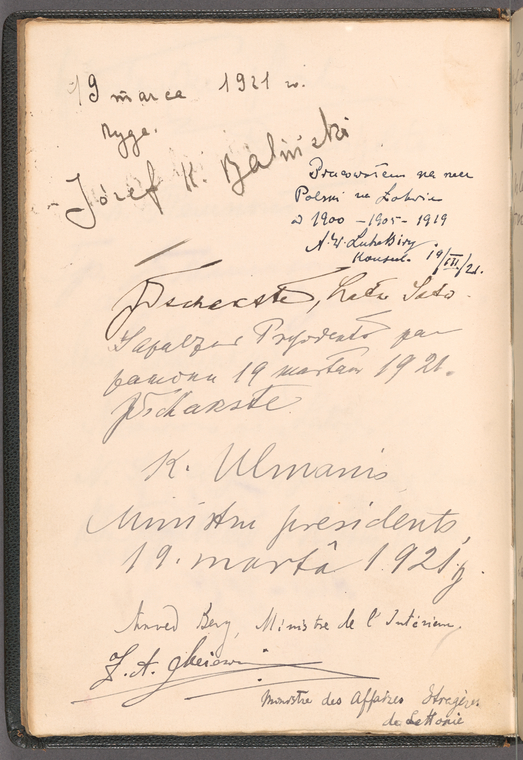 19 marca 1921 r.
Ryga.
Józef K. Baliński
Pracowałem na rzecz
Polski na Łotwie
w 1900 - 1905 - 1919
Konsul. 19/III./21.
JTschakste, Latw. Sato
Sapulzes Presidents par
19 martam 1921.
JTschakste
K. Ulmanis
Ministru presidents,
19. martâ 1921.g.
Arved Berg, Ministre de l'Intérieur.
Z. A. Meierovics
Ministre des Affaires Etragères
de Lettonie